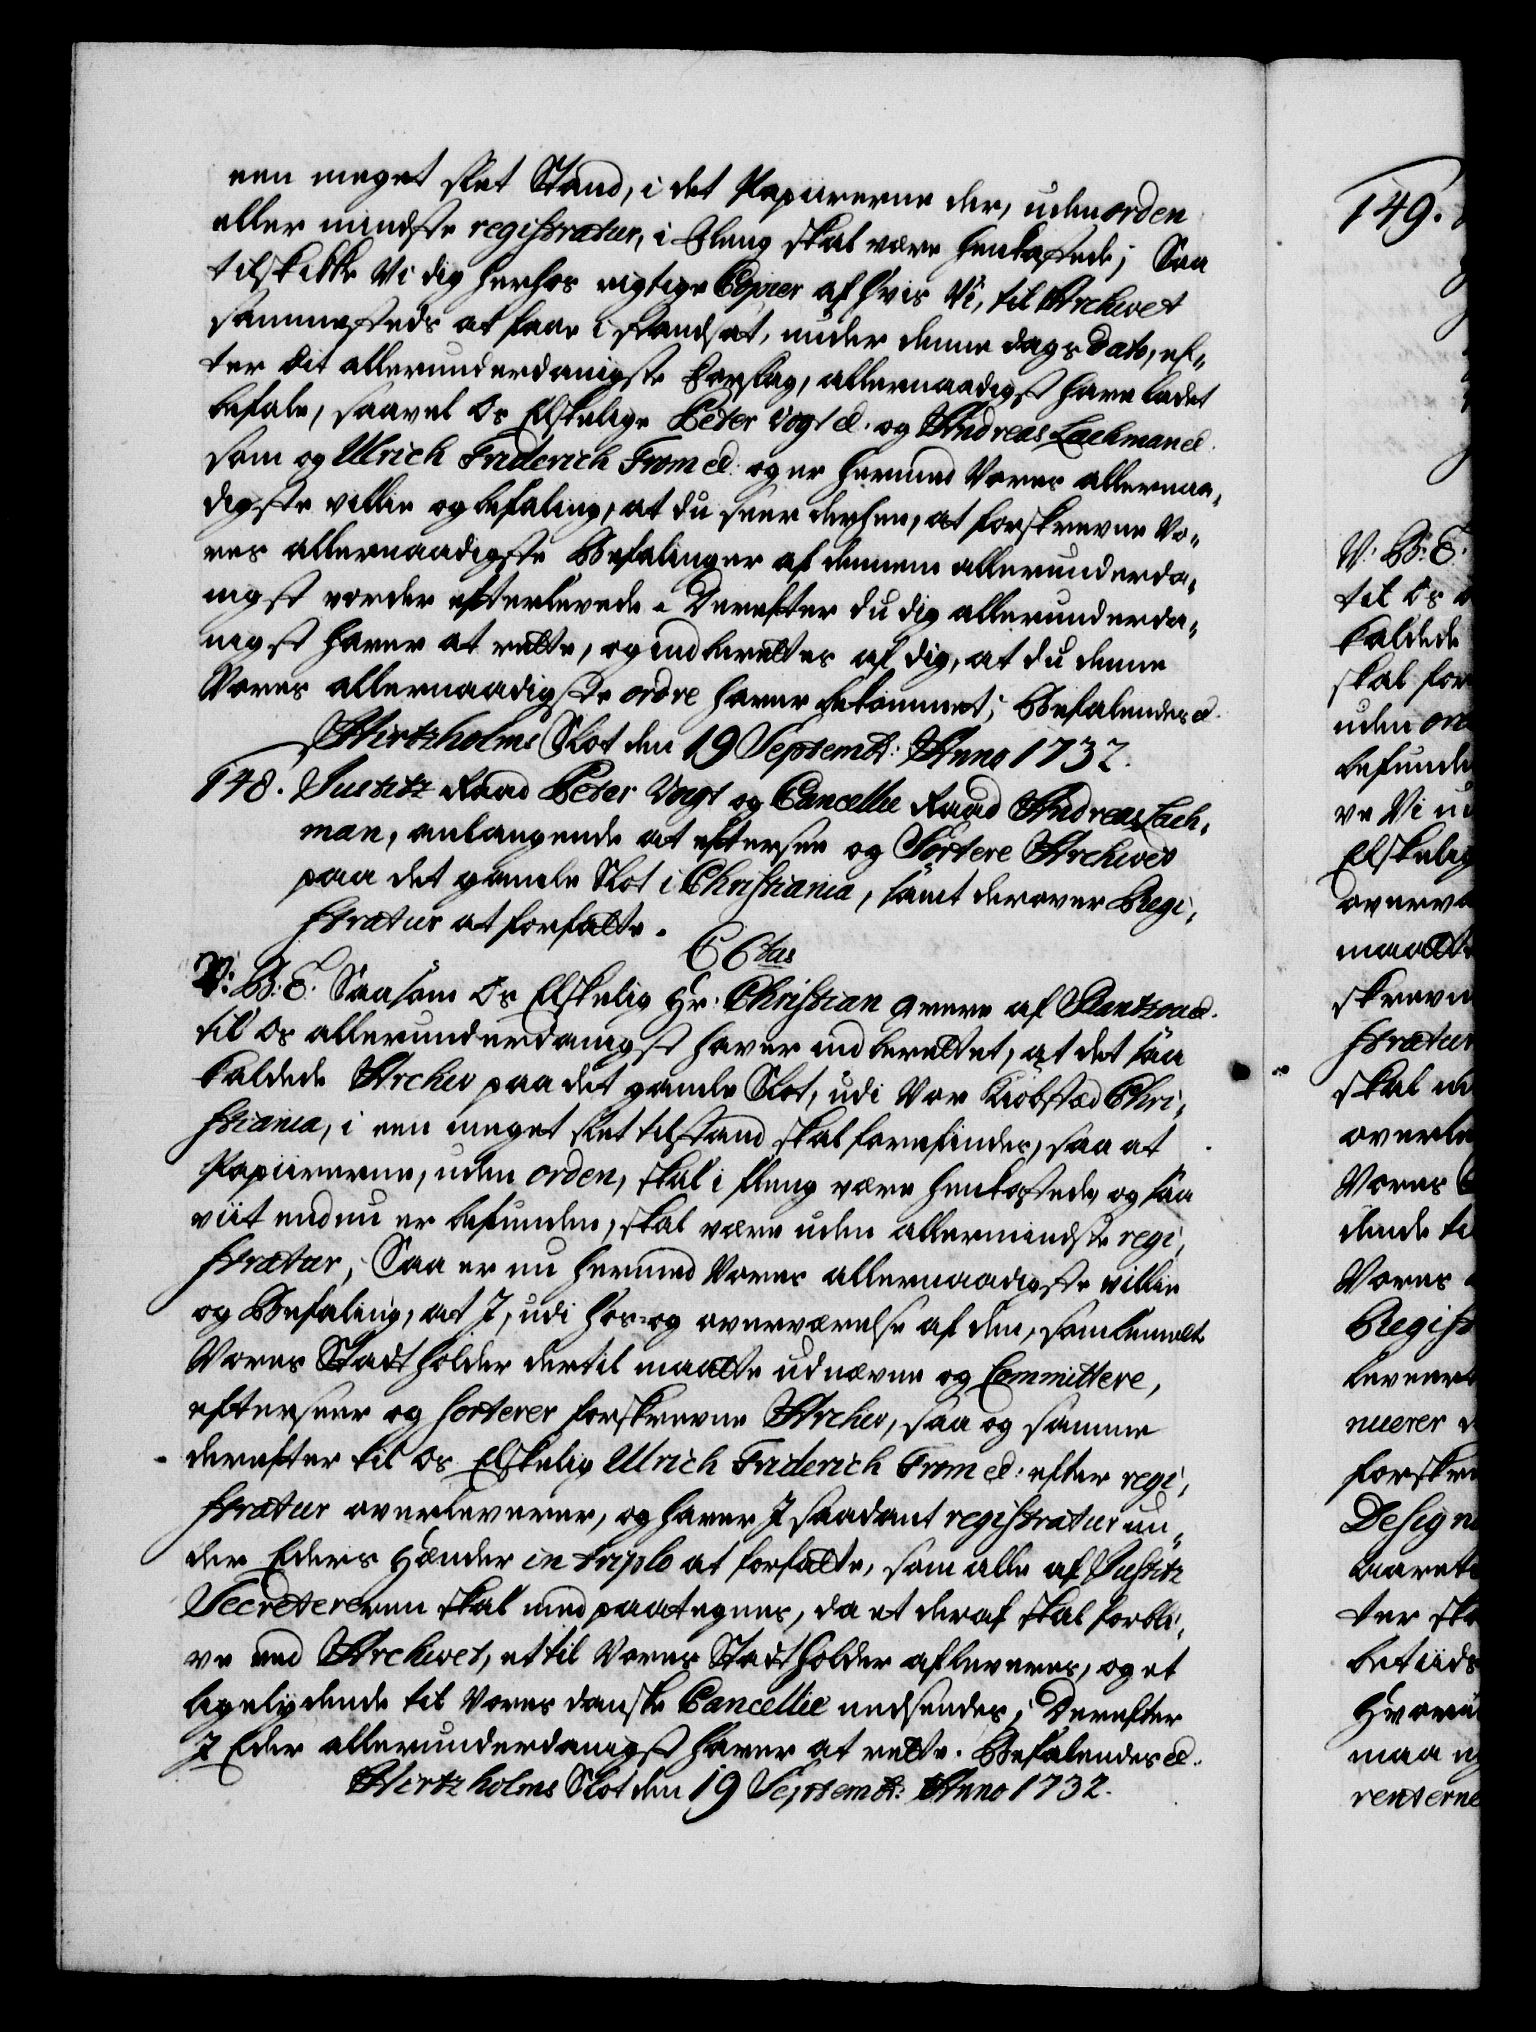 een meget slet Stand, i det Papiirerne der, uden orden
eller mindste registratur, i fleng skal være henkastede; Saa
tilskikke Vi dig herhos rigtige Copier af hvis Vi, til Archivet
sammesteds at faae i stand sat, under denne dags dato, ef„
ter dit allerunderdanigste Forslag, allernaadigst have ladet
befale, saavel Os Elskelige Peter Vogt &. og Andreas Lachman &.
som og Ulrich Friderich From &. og er hermed Vores allernaa„
digste villie og befaling, at du seer derhen, at forskrevne Vo„
res allernaadigste Befalinger af dennem allerunderda„
nigst vorder efterlevede. Derefter du dig allerunderda„
nigst haver at rette, og indberettes af dig, at du denne
Vores allernaadigste ordre haver bekommet; Befalendes &.
Hirtzholms Slot den 19 Septembr: Anno 1732.
148. Justitz Raad Peter Vogt og Cancellie Raad Andreas Lach„
man, anlangende at eftersee og Sortere Archivet
paa det gamle Slot i Christiania, samt derover Regi„
stratur at forfatte.
C 6tus
V: B: E. Saasom Os Elskelig Hr: Christian Greve af Rantzou &.
til Os allerunderdanigst haver indberettet, at det saa
kaldede Archiv paa det gamle Slot, udi Vor Kiøbstæd Chri„
stiania, i een meget slet tilstand skal forefindes, saa at
Papiirerne, uden orden, skal i fleng være henkastede, og saa
viit endnu er befunden, skal være uden allermindste regi„
stratur; Saa er nu hermed Vores allernaadigste villie
og Befaling, at I, udi hos- og overværelse af den, som bemelte
Vores Stadtholder dertil maatte udnævne og Committere,
efterseer og sorterer forskrevne Archiv, saa og samme
derefter til Os Elskelig Ulrich Friderich From &. efter regi„
stratur overleverer, og haver I saadant registratur un„
der Eders Hænder in triplo at forfatte, som alle af Justitz
Secretereren skal med paategnes, da et deraf skal forbli„
ve ved Archivet, et til Vores Stadtholder afleveres, og et
ligelydende til Vores danske Cancellie nedsendes; Derefter
I Eder allerunderdanigst haver at rette. Befalendes &.
Hirtzholms Slot den 19 Septembr: Anno 1732.
149.
V: B: E.
til Os
kaldede
skal for
uden or
befunde
ve Vi
Elskelig
overvæ
maatte
skrevne
stratur
skal
overle
Vores
dende
Vores
Regist
leveert
nuerer
forskre
Design
ter sk
betiids
maa
renterne